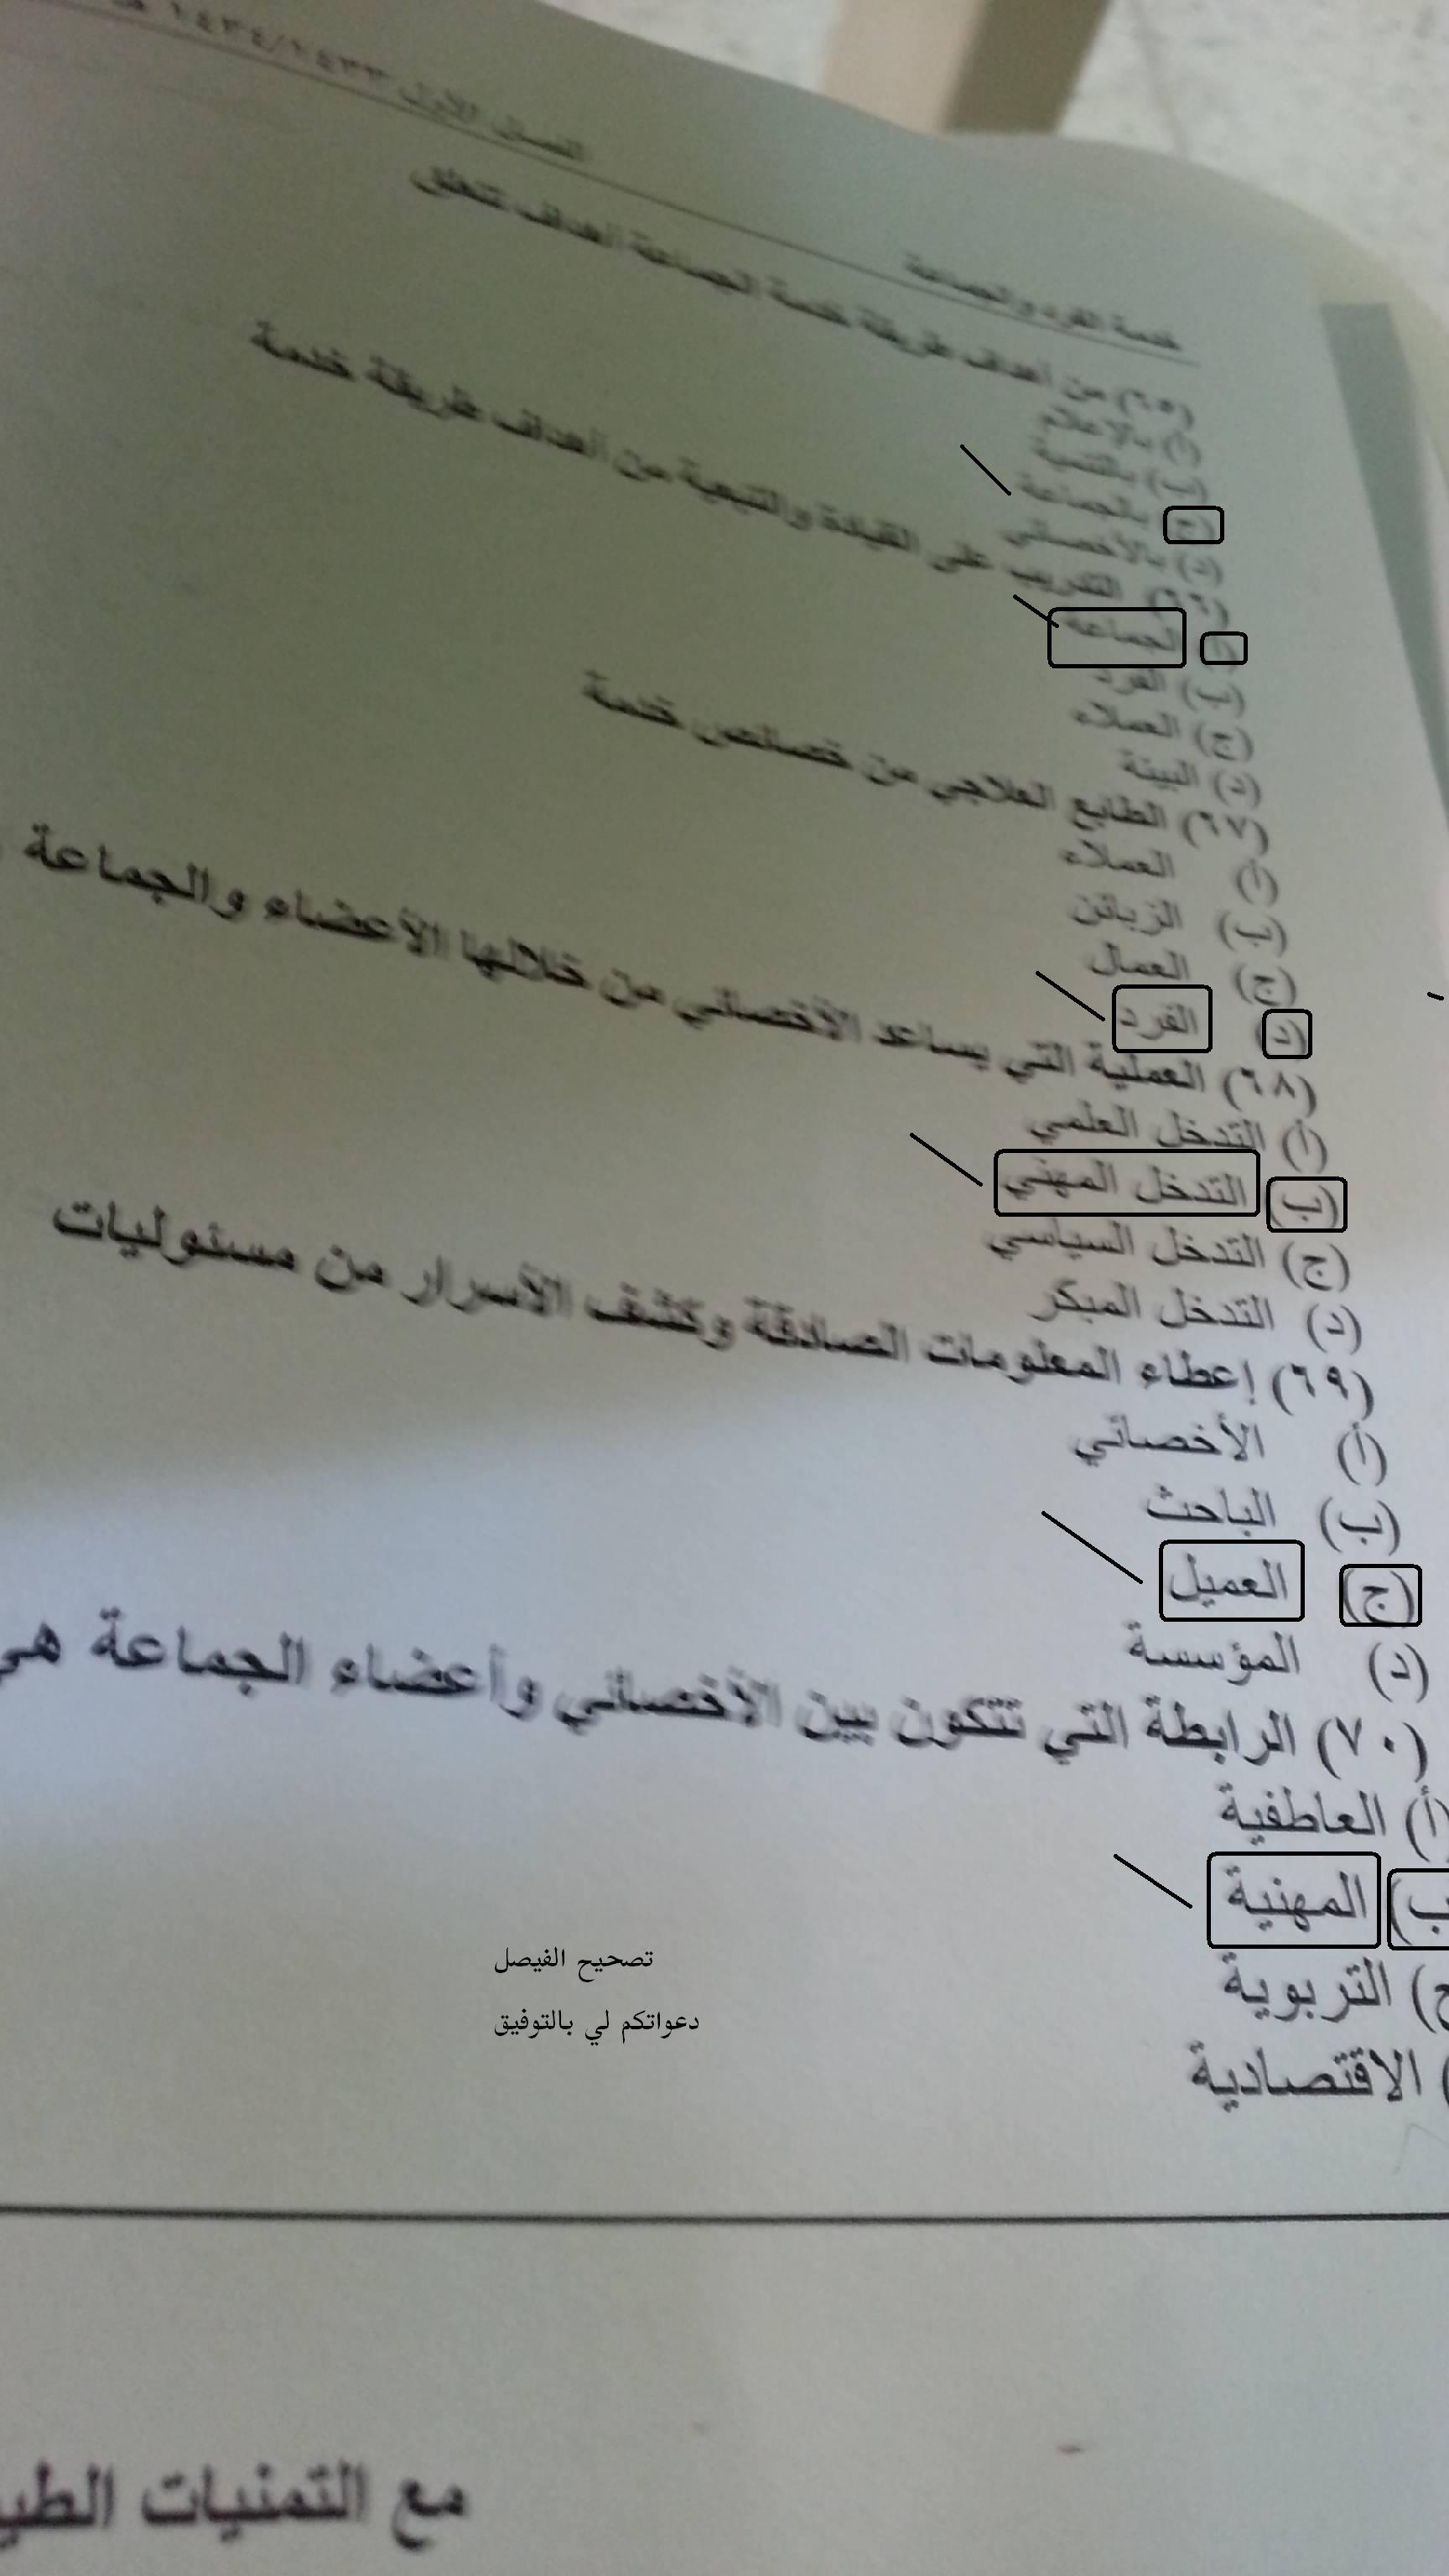 خدمة الفرد والجماعة
الفصل الأول ١٤٣٣/١٤٣٤ هـ
(٦٥) من أهداف طريقة خدمة الجماعة أهداف تتعلق
(أ) بالإعلام
(ب) بالتنمية
(ج) بالجماعة
(د) بالأخصائي
(٦٦) التدريب على القيادة والتبعية من أهداف طريقة خدمة
(أ) الجماعة
(ب) الفرد
(ج) العملاء
(د) البيئة
(٦٧) الطابع العلاجي من خصائص خدمة
(أ) العملاء
(ب) الزبائن
(ج) العمال
(د) الفرد
(٦٨) العملية التي يساعد الأخصائي من خلالها الأعضاء والجماعة
(أ) التدخل العلمي
(ب) التدخل المهني
(ج) التدخل السياسي
(د) التدخل المبكر
(٦٩) إعطاء المعلومات الصادقة وكشف الأسرار من مسئوليات
(أ) الأخصائي
(ب) الباحث
(ج) العميل
(د) المؤسسة
(٧٠) الرابطة التي تتكون بين الأخصائي وأعضاء الجماعة هي
(أ) العاطفية
ب) المهنية
ج) التربوية
) الاقتصادية
تصحيح الفيصل
دعواتكم لي بالتوفيق
مع التمنيات